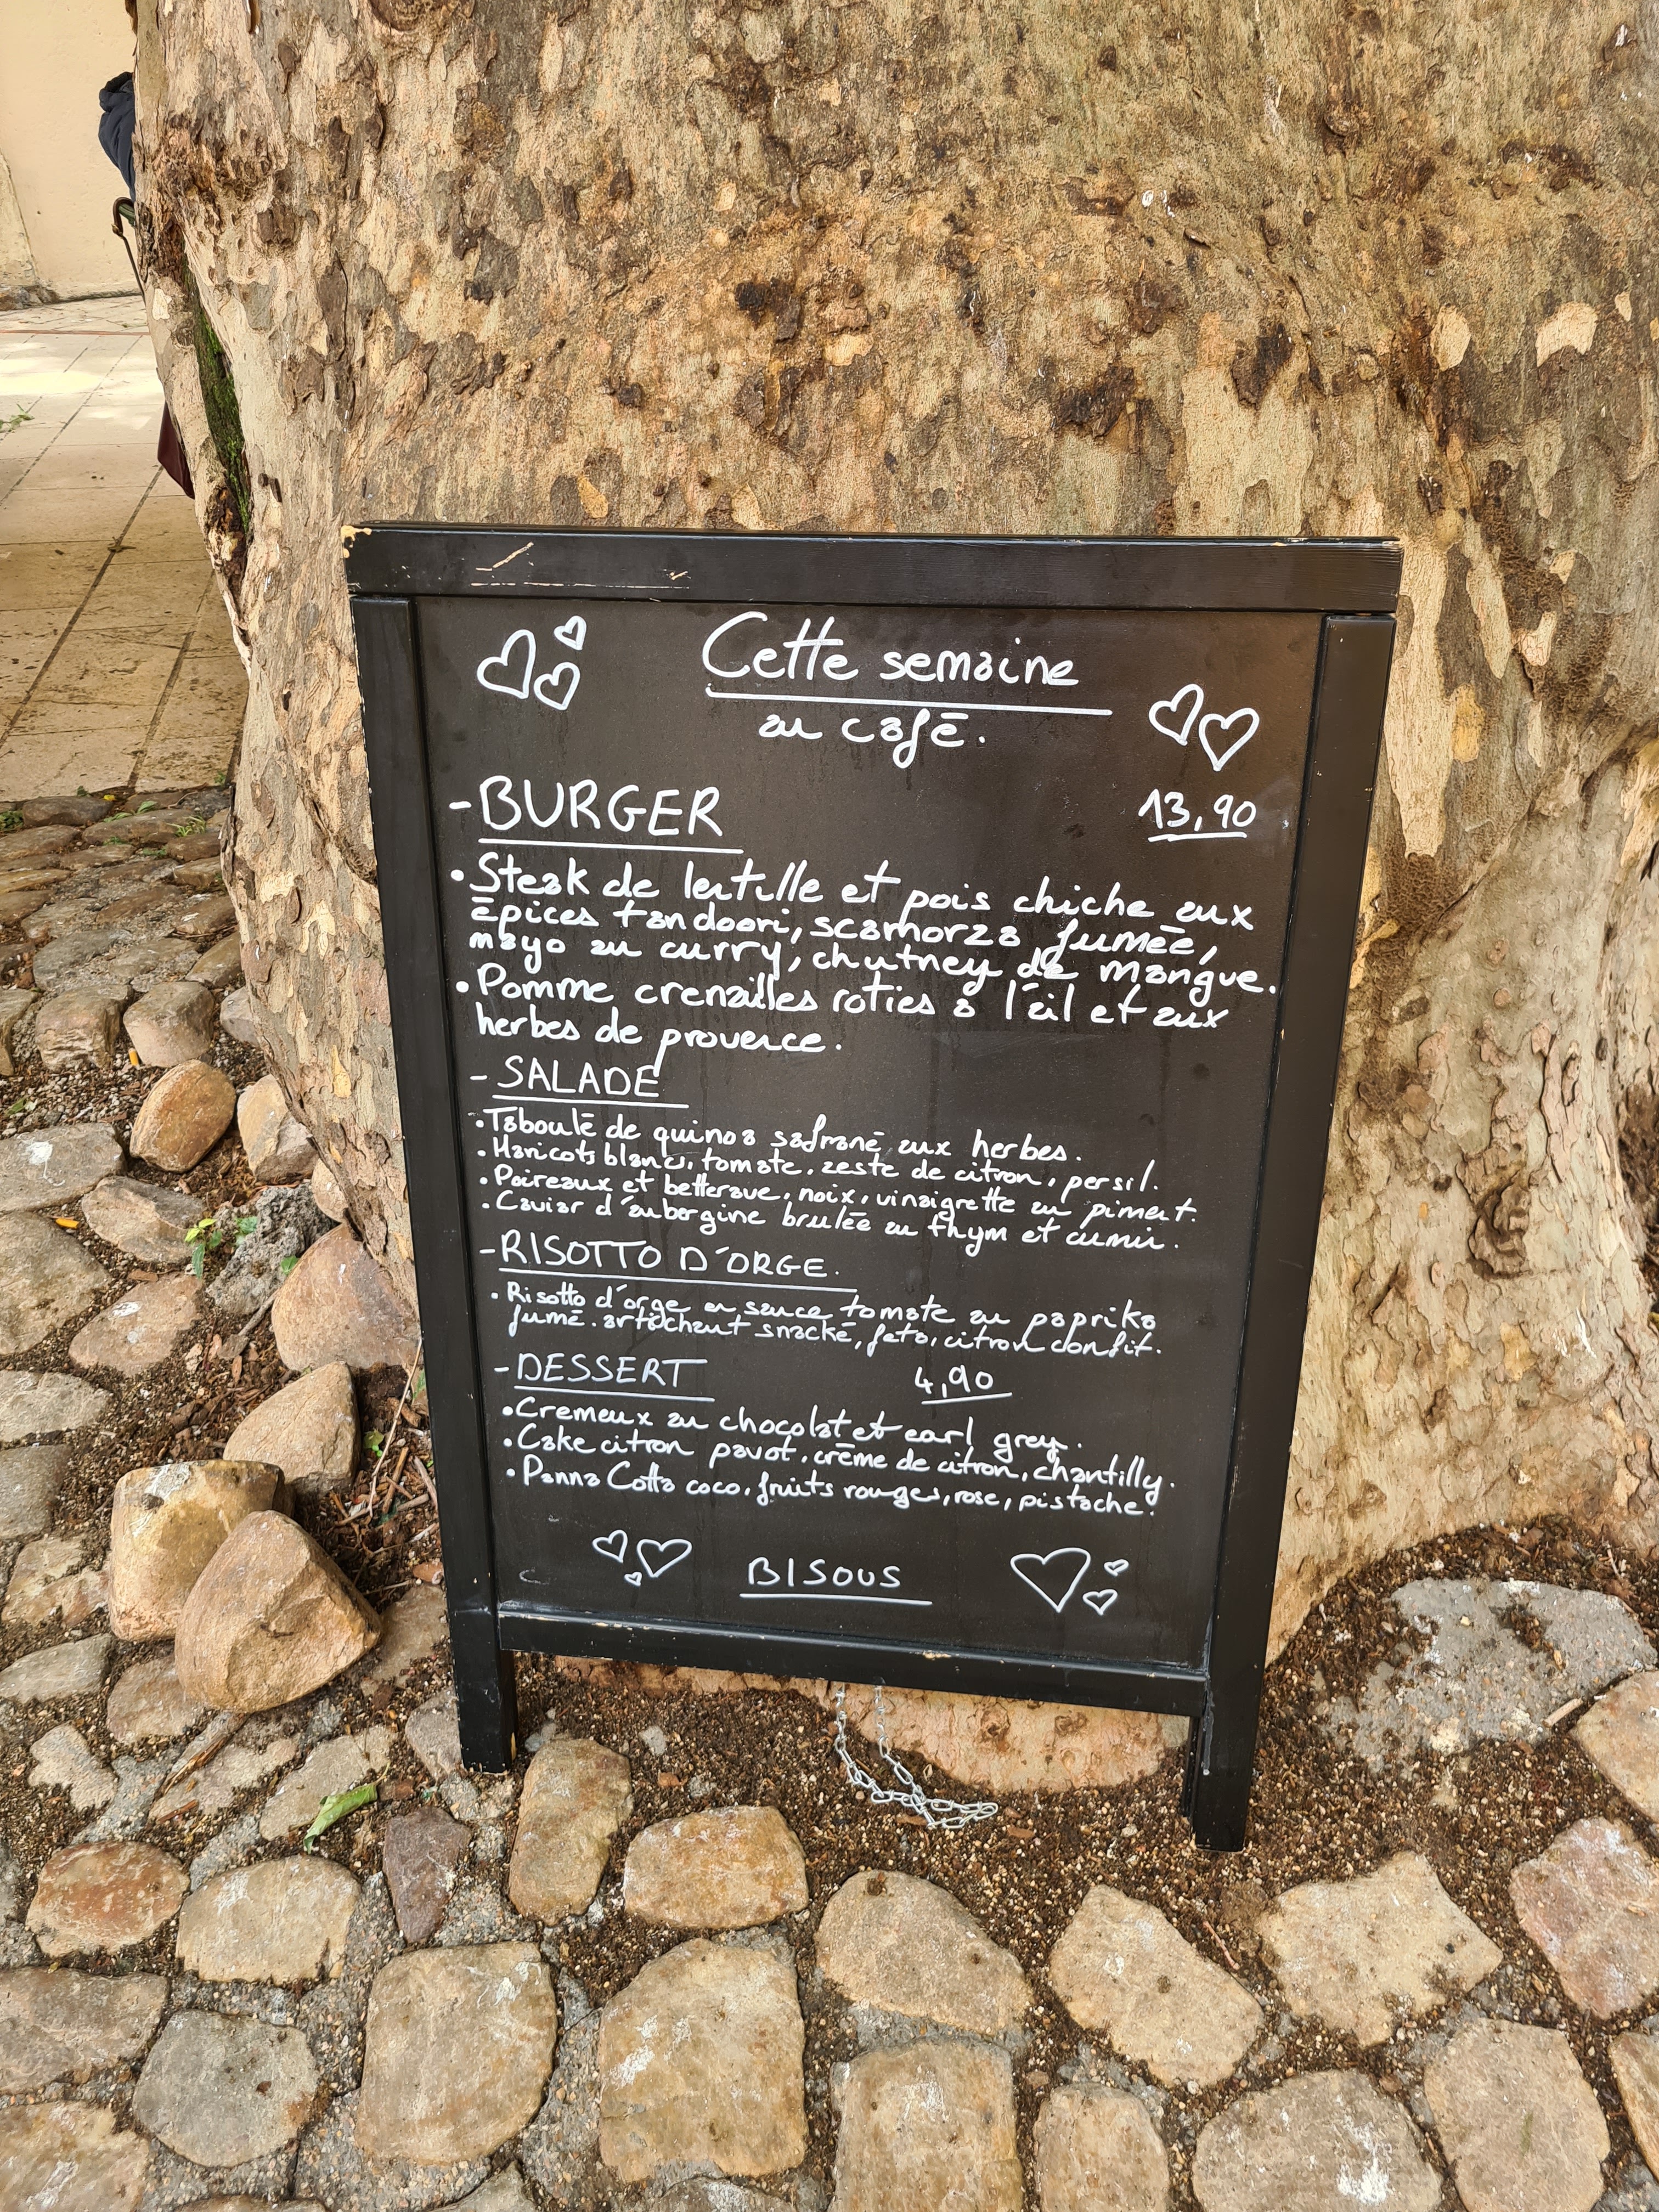 Cette semaine
au café.
- BURGER 13,90
• Steak de lentille et pois chiche aux
épices tandoori, scamorza fumée,
mayo au curry, chutney de mangue.
• Pomme grenailles roties a l'ail et aux
herbes de provence.
- SALADE
• Taboulé de quinoa safrané aux herbes.
• Haricots blancs, tomate, zeste de citron, persil.
• Poireaux et betterave, noix, vinaigrette au piment.
• Caviar d'aubergine brulée au thym et cumin.
- RISOTTO D'ORGE.
• Risotto d'orge en sauce tomate au paprika
fumé. artichaut snacké, feta, citron confit.
- DESSERT 4,90
• Cremeux au chocolat et earl grey.
• Cake citron pavot, crème de citron, chantilly.
• Panna Cotta coco, fruits rouges, rose, pistache.
BISOUS